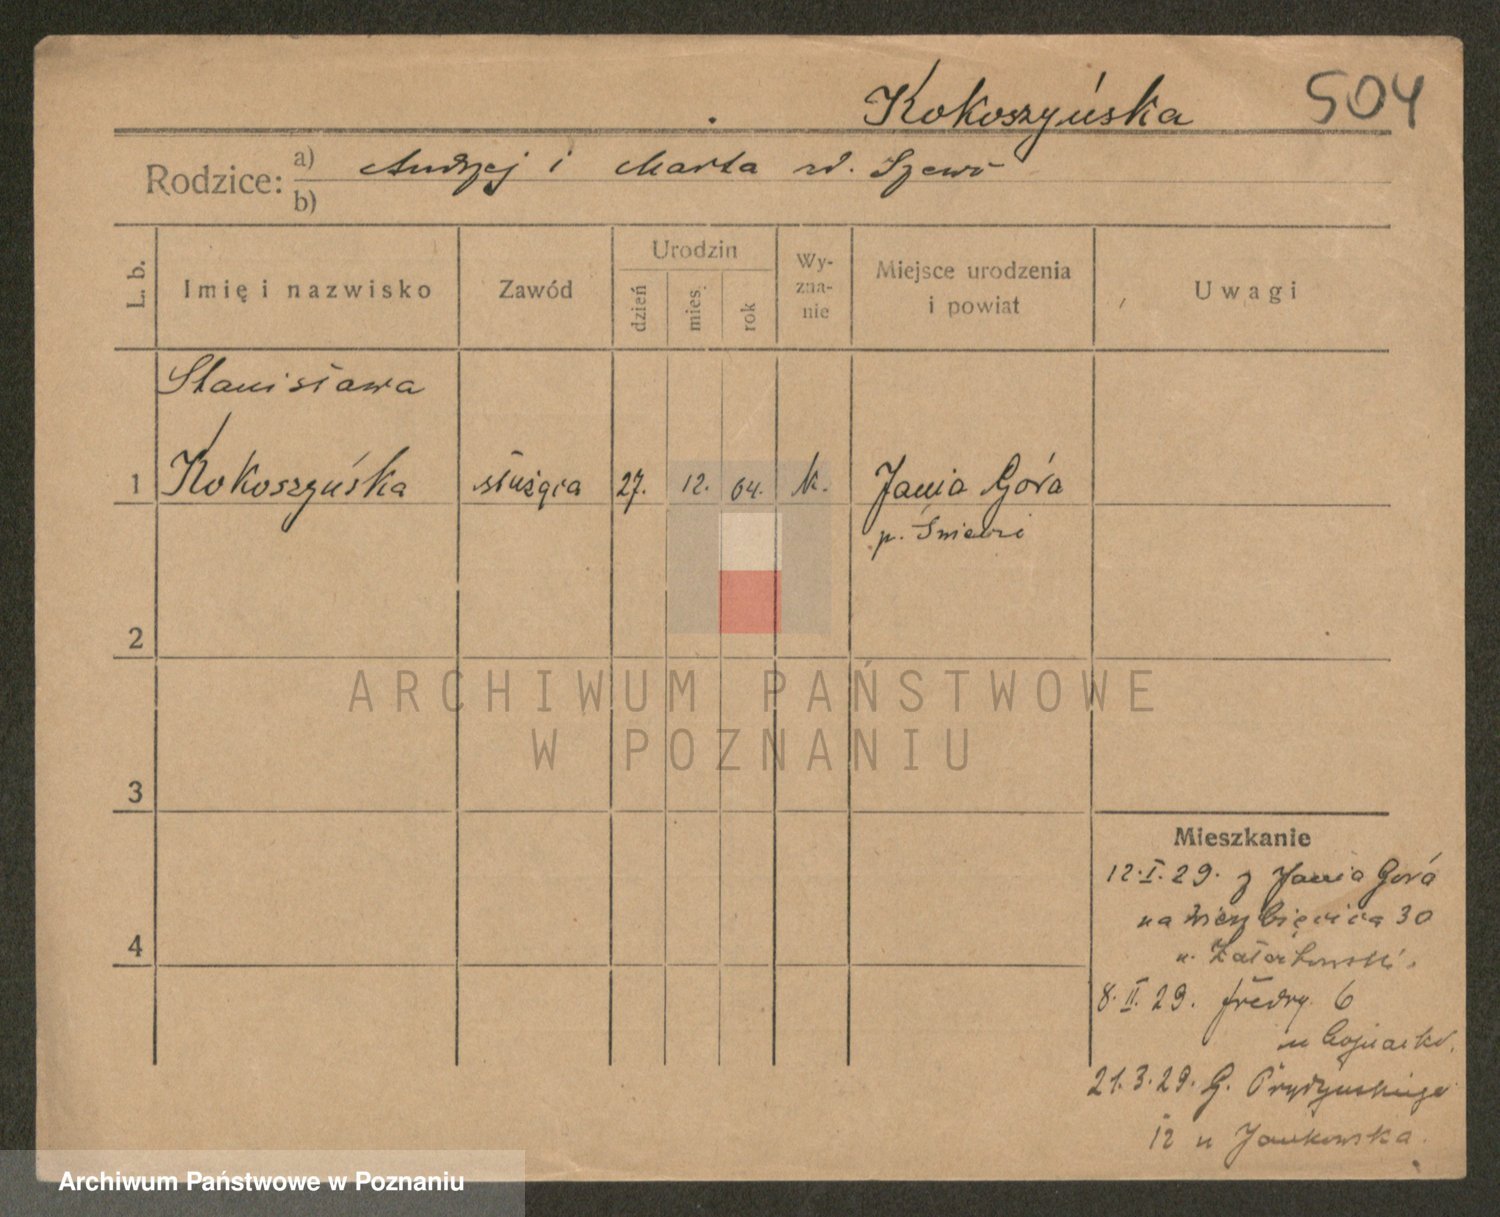 Kokoszyńska 504
Rodzice: a) Andrzej i Marta zd. Szews
b)
L. b.
Imię i nazwisko
Zawód
Urodzin
dzień
mies.
rok
Wy-
zna-
nie
Miejsce urodzenia
i powiat
Uwagi
Stanisława
1 Kokoszyńska służąca 27. 12. 04. k. Jania Góra
p. Świecie
2
3
4
Mieszkanie
12.I.29. z Jania Góra
na Wierzbięcica 30
u.
8.II.29. Fredry. 6
u
21.3.29. G. Prądzyńskiego
12 u Jankowska.
ARCHIWUM PAŃSTWOWE
W POZNANIU
Archiwum Państwowe w Poznaniu